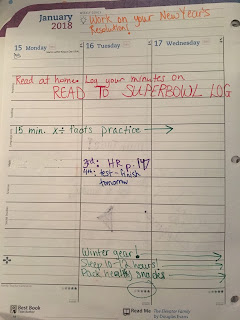 January
2018
Work on your New Year's
Resolution!
15 Monday
16 Tuesday
17 Wednesday
Read at home. Log your minutes on
READ TO SUPERBOWL LOG
15 min. x÷ facts practice
3rd: HR p. 147
4th: test-finish
tomorrow
Winter gear!
Sleep 10-12 hours!
Pack healthy snacks
Best Book
Read Me
The Deadly Family
by Douglas Evans